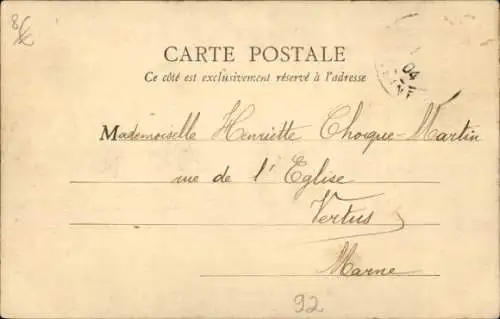 CARTE POSTALE
Ce côté est exclusivement réservé à l'adresse
04
Mademoiselle Henriette Choque-Martin
rue de l'Eglise
Vertus
Marne
92